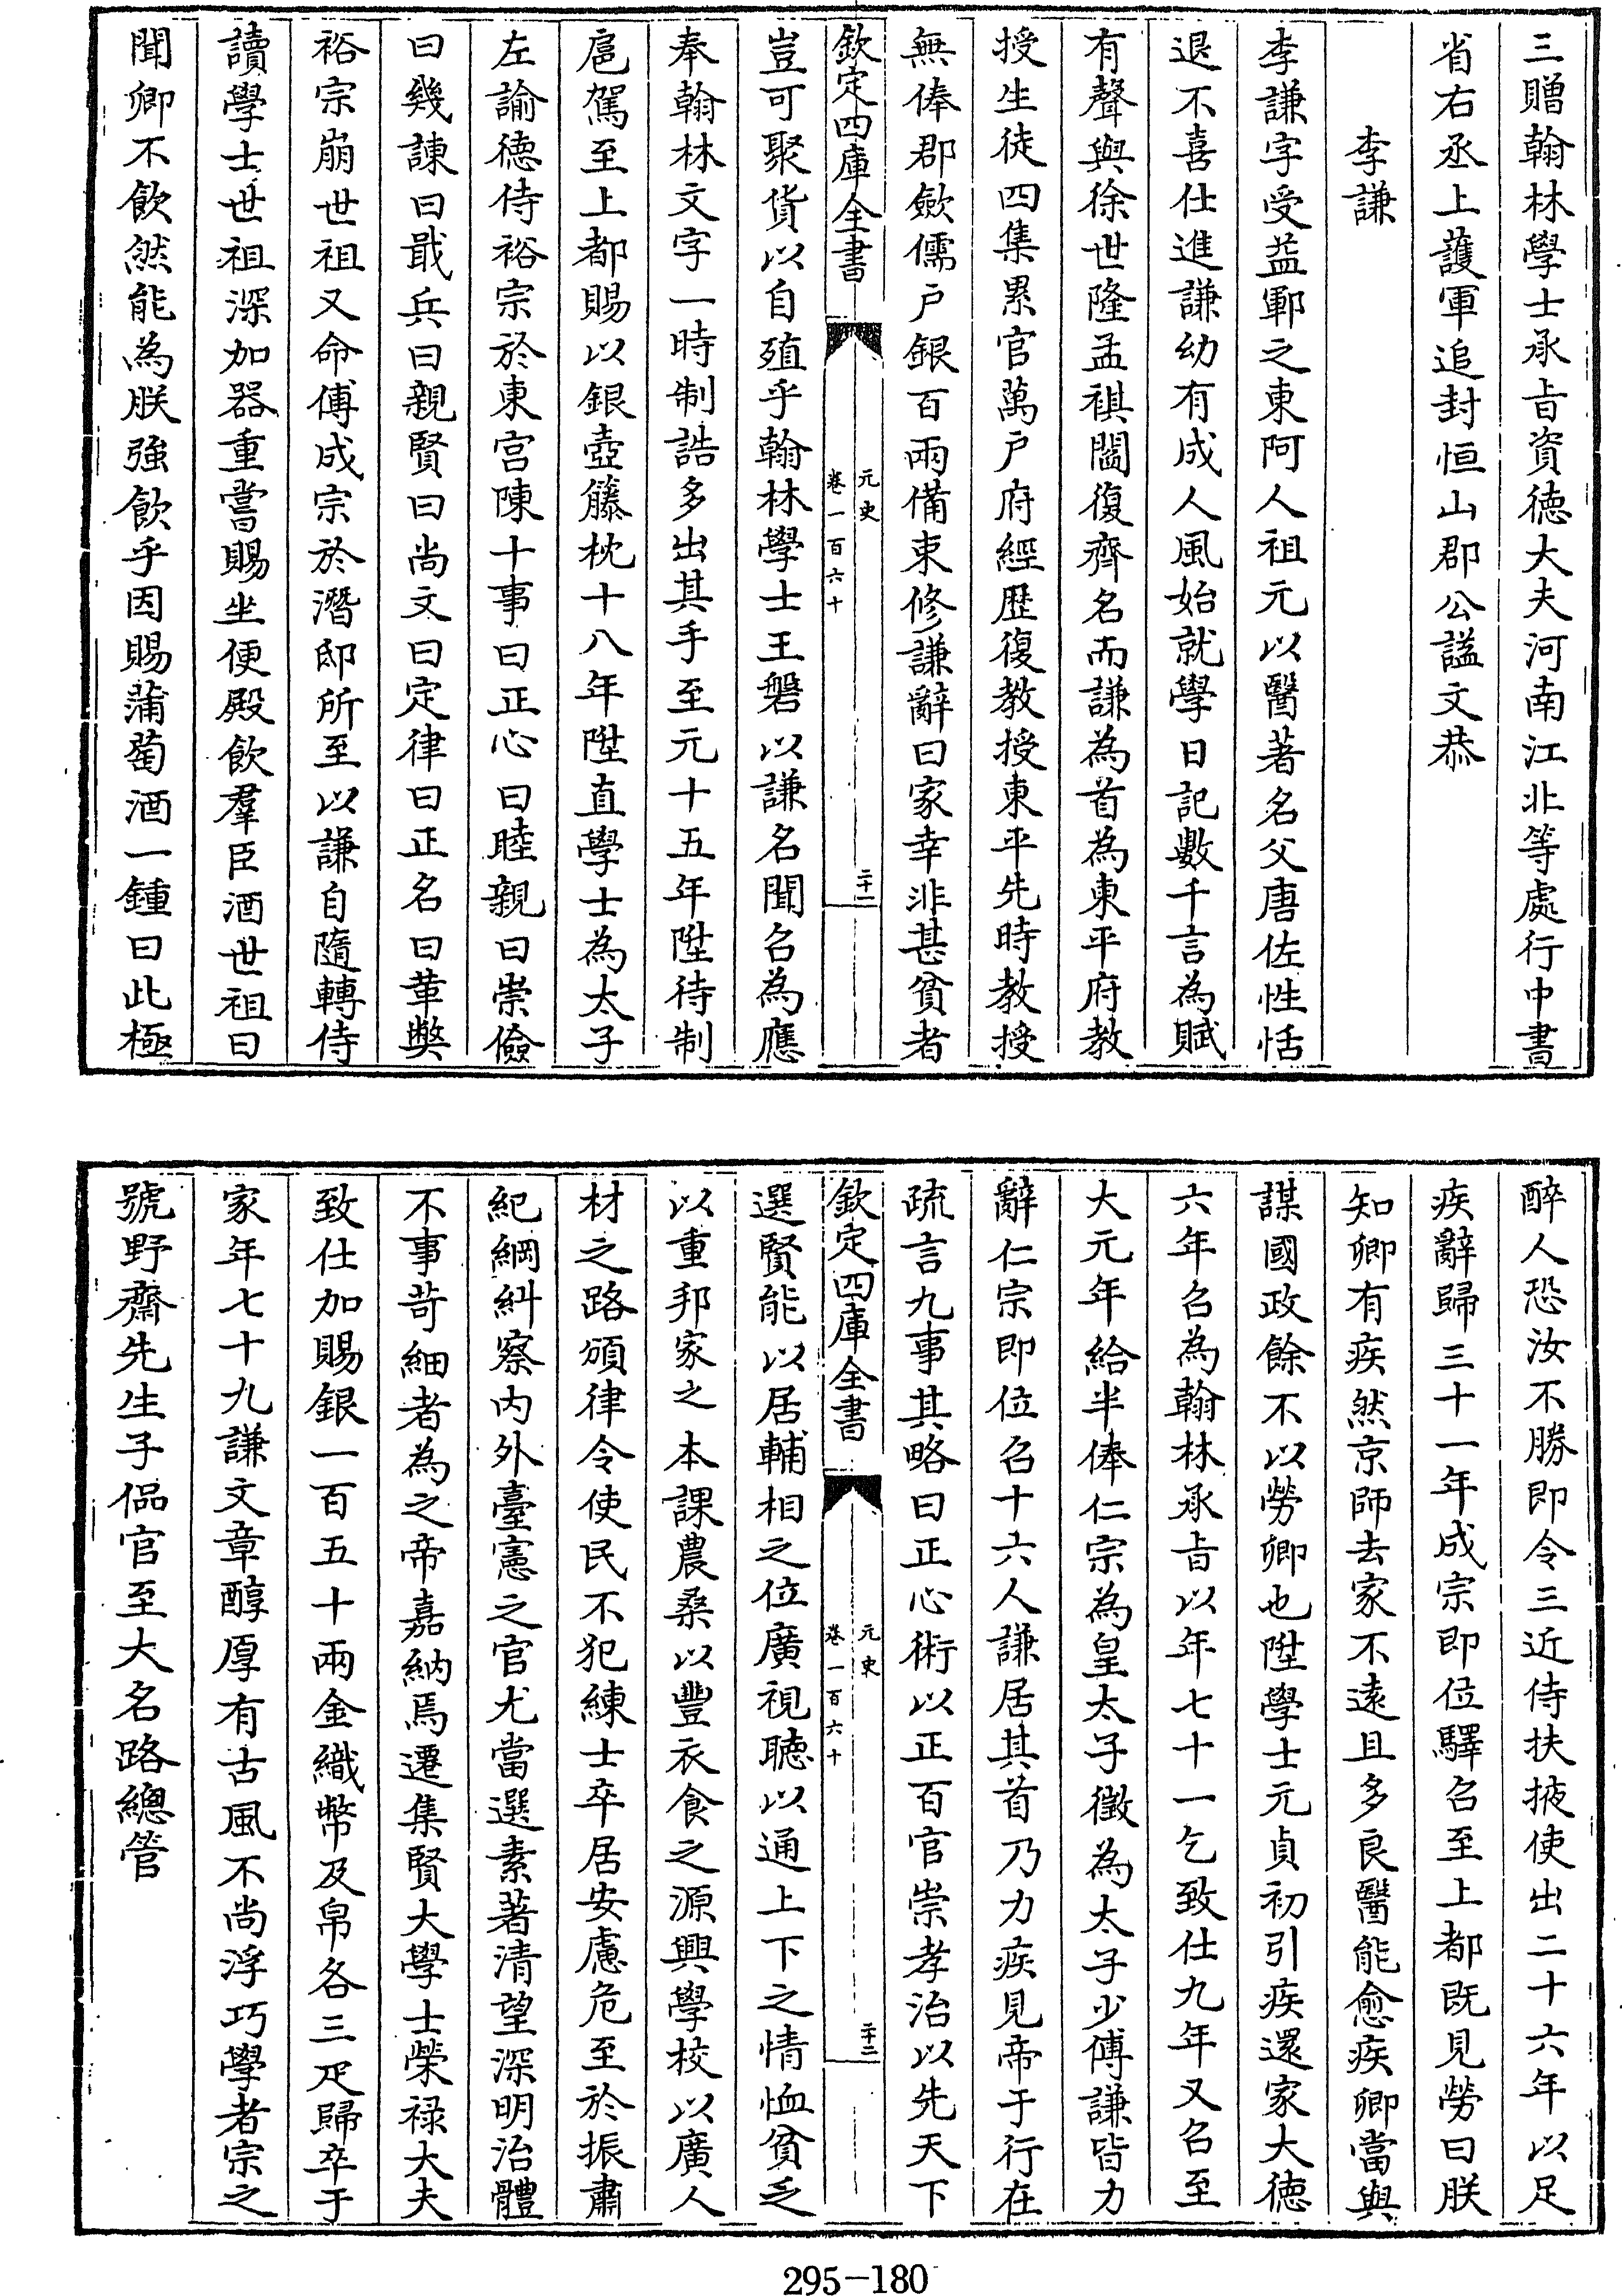 三贈翰林學士承旨資德大夫河南江北等處行中書
省右丞上護軍追封恒山郡公諡文恭
李謙
李謙字受益鄆之東阿人祖元以醫著名父唐佐性恬
退不喜仕進謙幼有成人風始就學日記數千言為賦
有聲與徐世隆孟祺閻復齊名而謙為首為東平府教
授生徒四集累官萬户府經歴復教授東平先時教授
無俸郡斂儒户銀百兩備束修謙辭曰家幸非甚貧者
欽定四庫全書
元史
卷一百六十
二十一
豈可聚貨以自殖乎翰林學士王磐以謙名聞召為應
奉翰林文字一時制誥多出其手至元十五年陞待制
扈駕至上都賜以銀壺籐枕十八年陞直學士為太子
左諭德侍裕宗於東宫陳十事曰正心曰睦親曰崇儉
曰幾諫曰戢兵曰親賢曰尚文曰定律曰正名曰革弊
裕宗崩世祖又命傅成宗於潛邸所至以謙自隨轉侍
讀學士世祖深加器重嘗賜坐便殿飲羣臣酒世祖曰
聞卿不飲然能為朕強飲乎因賜蒲萄酒一鍾曰此極
醉人恐汝不勝即令三近侍扶掖使出二十六年以足
疾辭歸三十一年成宗即位驛召至上都既見勞曰朕
知卿有疾然京師去家不遠且多良醫能愈疾卿當與
謀國政餘不以勞卿也陞學士元貞初引疾還家大德
六年召為翰林承旨以年七十一乞致仕九年又召至
大元年給半俸仁宗為皇太子徵為太子少傅謙皆力
辭仁宗即位召十六人謙居其首乃力疾見帝于行在
疏言九事其略曰正心術以正百官崇孝治以先天下
欽定四庫全書
元史
卷一百六十
二十二
選賢能以居輔相之位廣視聽以通上下之情恤貧乏
以重邦家之本課農桑以豐衣食之源興學校以廣人
材之路頒律令使民不犯練士卒居安慮危至於振肅
紀綱糾察内外臺憲之官尤當選素著清望深明治體
不事苛細者為之帝嘉納焉遷集賢大學士榮禄大夫
致仕加賜銀一百五十兩金織幣及帛各三疋歸卒于
家年七十九謙文章醇厚有古風不尚浮巧學者宗之
號野齋先生子侣官至大名路總管
295-180